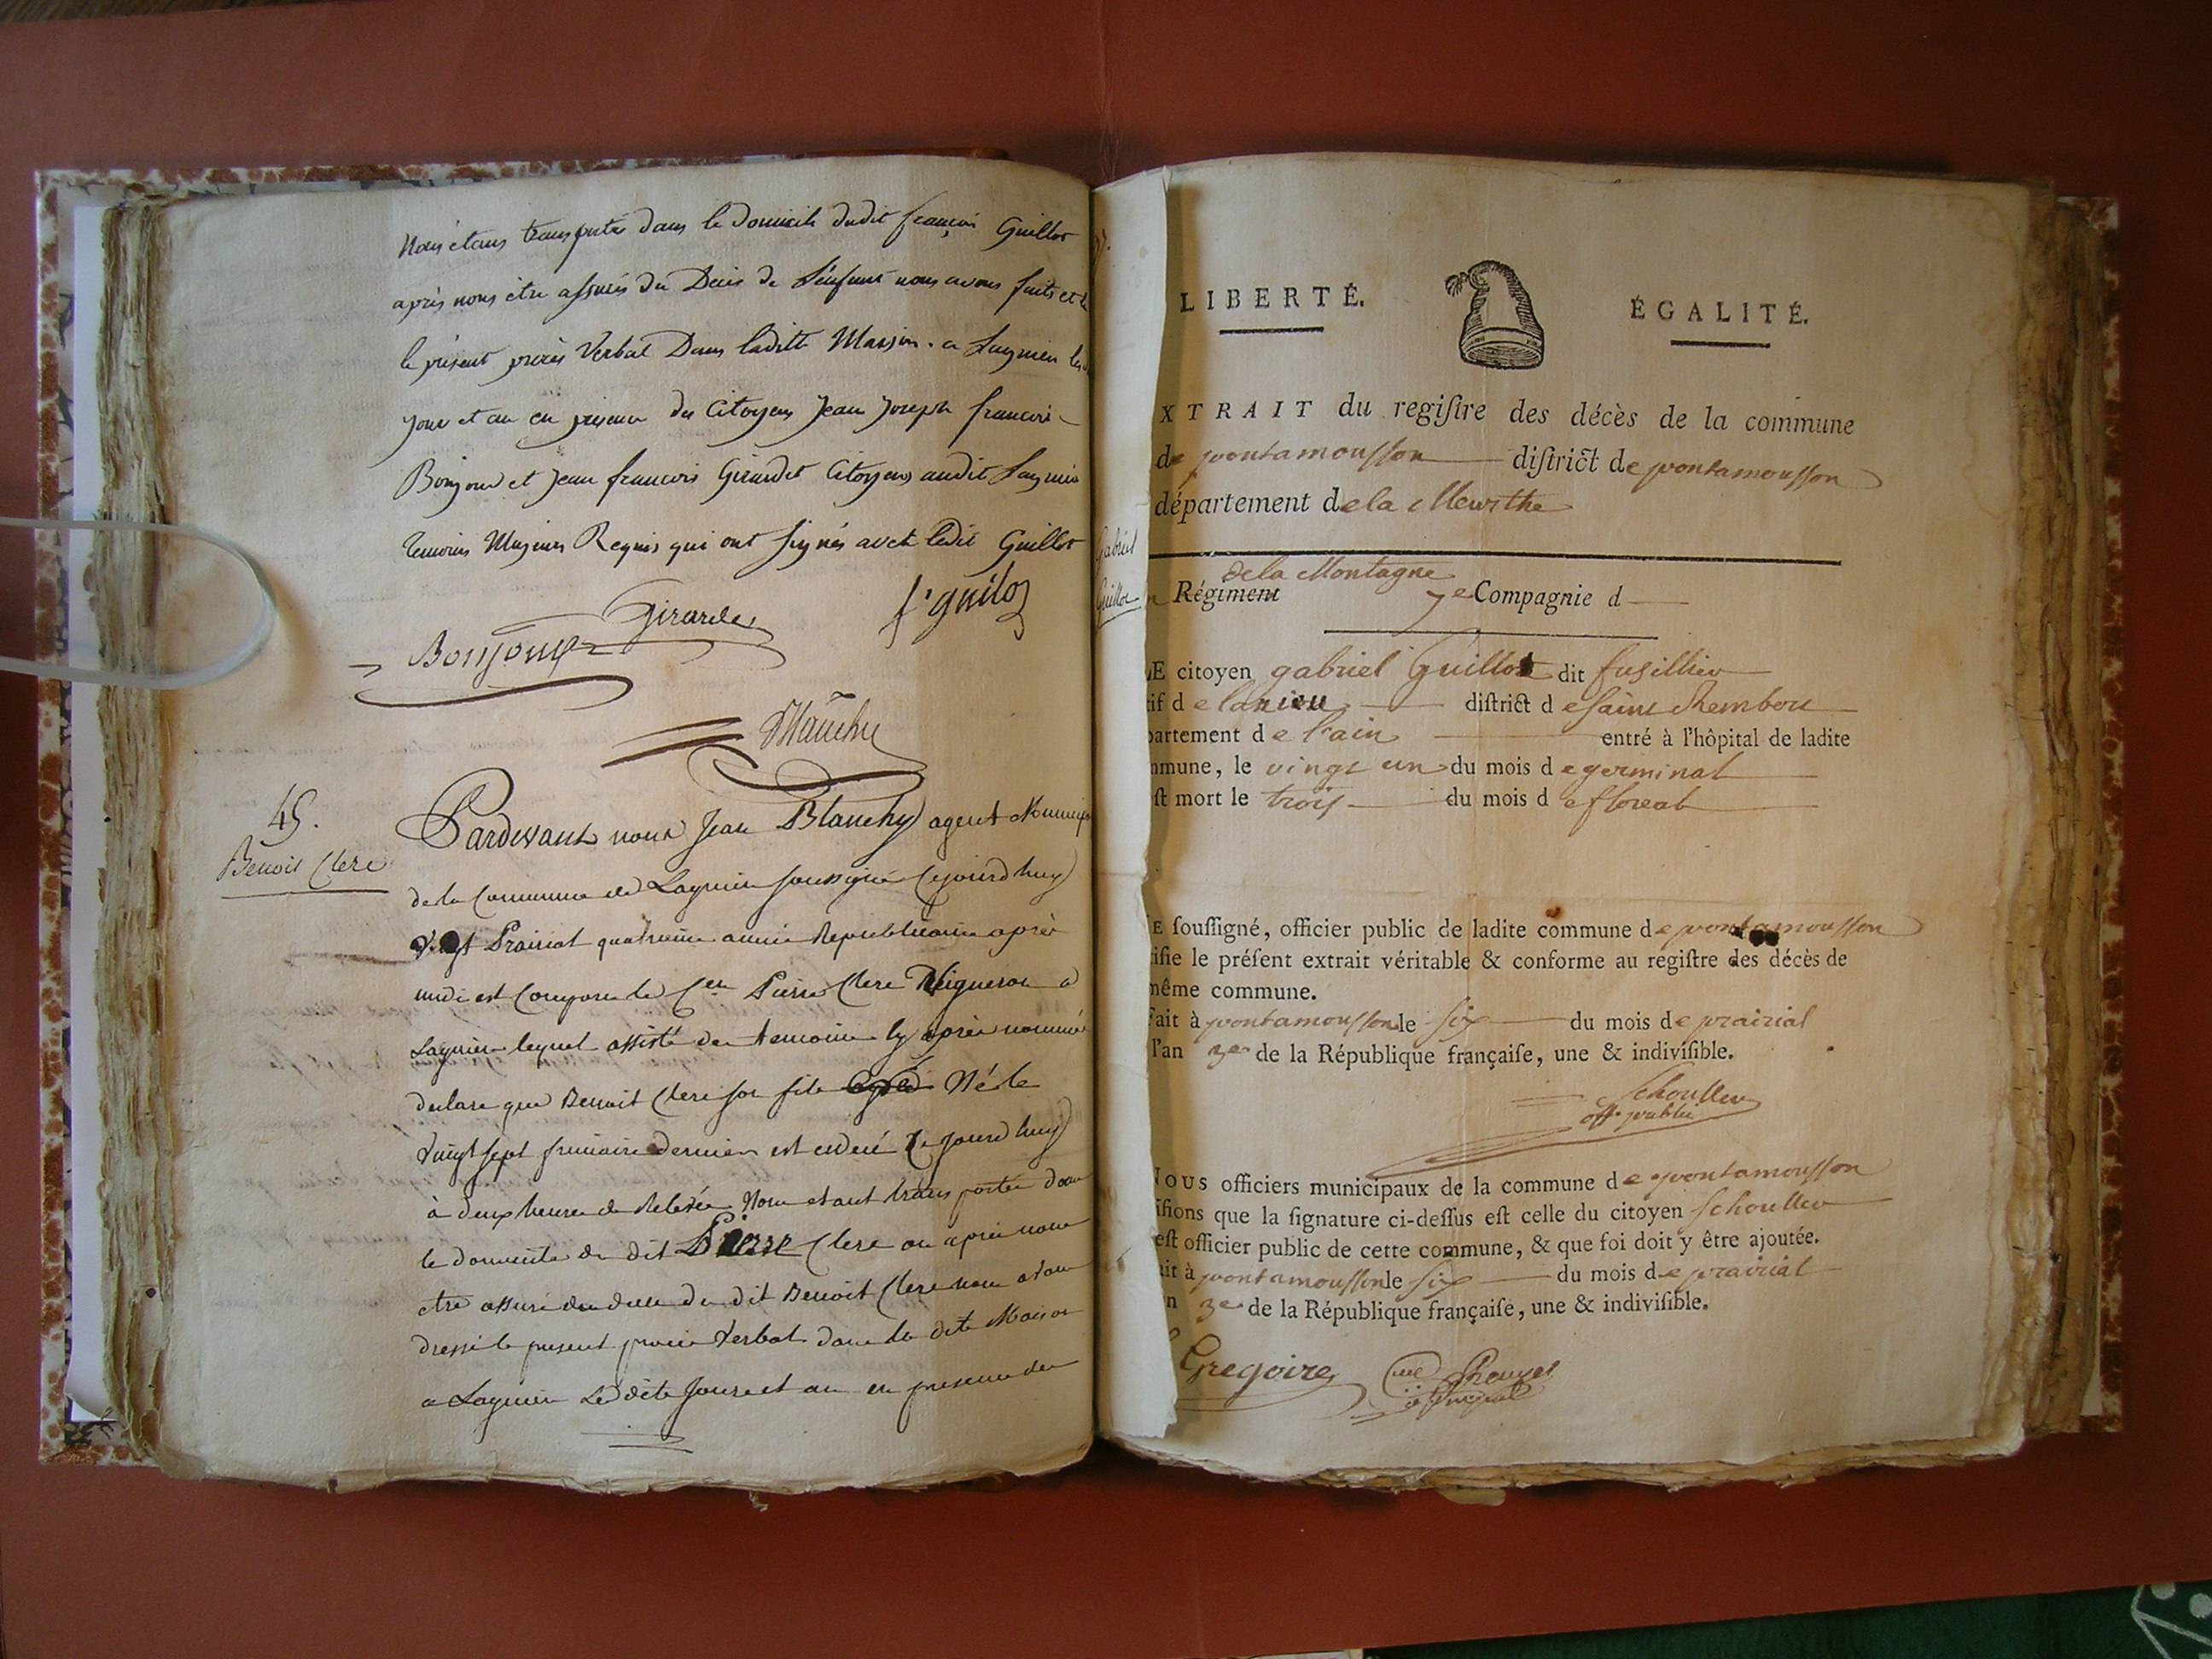 Nous étans transportés dans le Domicile dudit françois Guillot
après nous être assurés du Décès de L'énfant nous avons faits et
le présent procès Verbal Dans ladite Maison. a Lagnieu les
jour et an en presence des Citoyens Jean Joseph francois
Bonjour et Jean francois Girardet Citoyens audit Lagnieu
temoins Majeurs Requis qui ont signés avec ledit Guillot
Girardet
f. guilot
Bonjour
Blanchy
45.
Benoit Clerc
Pardevant nous Jean Blanchy agent Municip
de la Commune de Lagnieu soussigné Cejourd huy
vingt Prairial quatrieme année Republicaine après
midi est Comparu le Cen Pierre Clerc Vigneron a
Lagnieu lequel assisté des temoins Cy après nommés
declare que Benoit Clerc son fils Né le
vingt sept frimaire dernier est decedé Ce jourd huy
à deux heures de Relevée Nous etant transportés dans
le domicile du dit Pierre Clerc ou après nous
etre assuré du deces du dit Benoit Clerc nous avons
dressé le present procès Verbal dans la dite Maison
a Lagnieu Le dite Jours et an en presence des
LIBERTÉ. ÉGALITÉ.
XTRAIT du regiſtre des décès de la commune
de pontamousson diſtrict de pontamousson
département de la Meurthe
Gabriel
Guillot
de la Montagne
Régiment 7e Compagnie d
LE citoyen gabriel Guillot dit fusillier
tif de lanieu diſtrict de saint Rembert
partement de l'ain entré à l'hôpital de ladite
mmune, le vingt un du mois de germinal
ſt mort le trois du mois de floreal
E ſouſſigné, officier public de ladite commune de pontamousson
tifie le préſent extrait véritable & conforme au regiſtre des décès de
même commune.
Fait à pontamousson le six du mois de prairial
l'an 3e de la République françaiſe, une & indiviſible.
Schouller
off. public
NOUS officiers municipaux de la commune de pontamousson
ifions que la ſignature ci-deſſus eſt celle du citoyen Schouller
eſt officier public de cette commune, & que foi doit y être ajoutée.
ait à pontamousson le six du mois de prairial
n 3e de la République françaiſe, une & indiviſible.
Gregoire